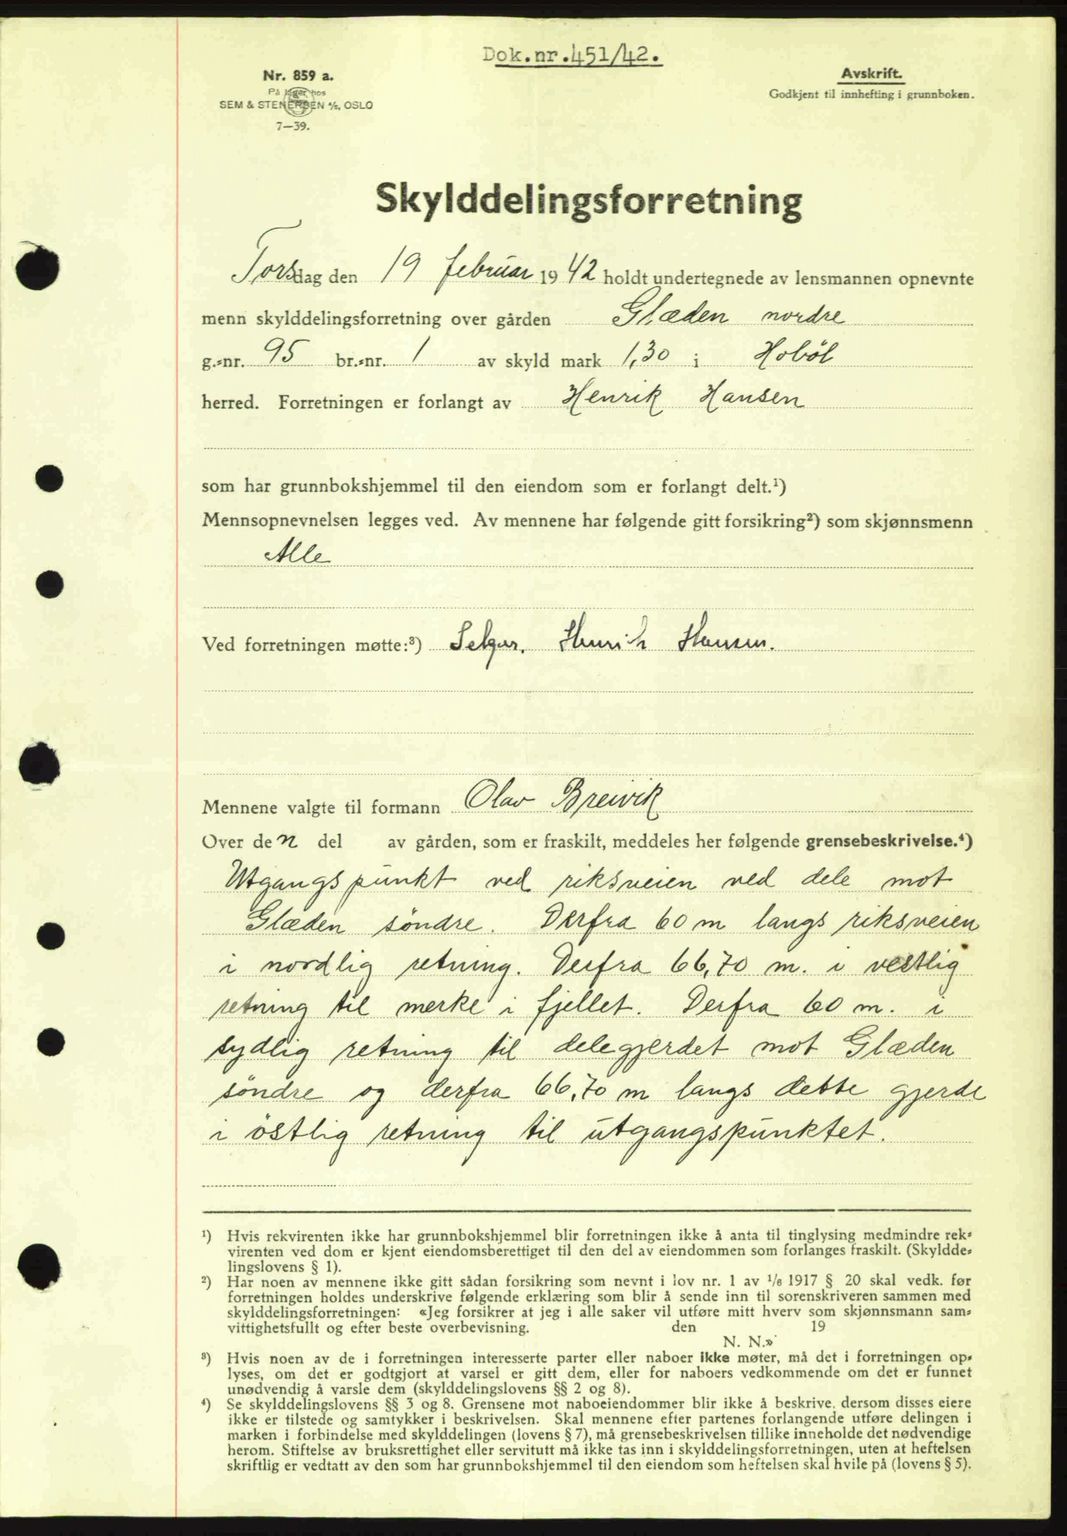 Dok.nr.451/42.
Nr. 859 a.
På lager hos
SEM & STENERSEN A/S, OSLO
7—39.
Avskrift.
Godkjent til innhefting i grunnboken.
Skylddelingsforretning
Torsdag den 19 februar 1942 holdt undertegnede av lensmannen opnevnte
menn skylddelingsforretning over gården Glæden nordre
g.-nr. 95 br.-nr. 1 av skyld mark 1,30 i Hobøl
herred. Forretningen er forlangt av Henrik Hansen
som har grunnbokshjemmel til den eiendom som er forlangt delt.¹)
Mennsopnevnelsen legges ved. Av mennene har følgende gitt forsikring²) som skjønnsmenn
Alle
Ved forretningen møtte:³) Selger. Henrik Hansen.
Mennene valgte til formann Olav Breivik
Over den del av gården, som er fraskilt, meddeles her følgende grensebeskrivelse.⁴)
Utgangspunkt ved riksveien ved dele mot
Glæden söndre. Derfra 60 m langs riksveien
i nordlig retning. Derfra 66,70 m. i vestlig
retning til merke i fjellet. Derfra 60 m. i
sydlig retning til delegjerdet mot Glæden
söndre og derfra 66,70 m langs dette gjerde
i östlig retning til utgangspunktet.
¹) Hvis rekvirenten ikke har grunnbokshjemmel blir forretningen ikke å anta til tinglysing medmindre rek-
virenten ved dom er kjent eiendomsberettiget til den del av eiendommen som forlanges fraskilt. (Skyldde-
lingslovens § 1).
²) Har noen av mennene ikke gitt sådan forsikring som nevnt i lov nr. 1 av 1/6 1917 § 20 skal vedk. før
forretningen holdes underskrive følgende erklæring som blir å sende inn til sorenskriveren sammen med
skylddelingsforretningen: «Jeg forsikrer at jeg i alle saker vil utføre mitt hverv som skjønnsmann sam-
vittighetsfullt og efter beste overbevisning. den 19
N. N.»
³) Hvis noen av de i forretningen interesserte parter eller naboer ikke møter, må det i forretningen op-
lyses, om det er godtgjort at varsel er gitt dem, eller for naboers vedkommende om det er funnet
unødvendig å varsle dem (skylddelingslovens §§ 2 og 8).
⁴) Se skylddelingslovens §§ 3 og 8. Grensene mot naboeiendommer blir ikke å beskrive, dersom disses eiere
ikke er tilstede og samtykker i beskrivelsen. Skal mennene efter partenes forlangende utføre delingen i
marken i forbindelse med skylddelingen (lovens § 7), må grensebeskrivelsen tillike inneholde det nødvendige
herom. Stiftelse av bruksrettighet eller servitutt må ikke tas inn i skylddelingsforretningen, uten at heftelsen
skriftlig er vedtatt av den som har grunnbokshjemmel til den eiendom som heftelsen skal hvile på (lovens § 5).